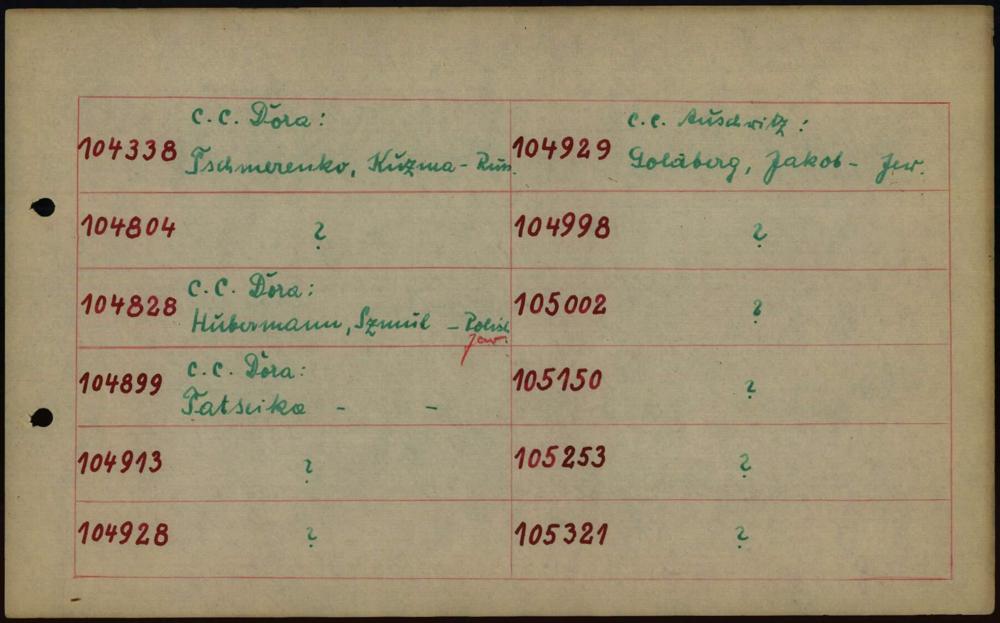 c.c. Dora:
104338 Tschmerenko, Kuzma - Russ.
104804 ?
c.c. Dora:
104828 Hubermann, Szmul - Polish
Jew.
c.c. Dora:
104899 - -
104913 ?
104928 ?
c.c. Auschwitz:
104929 Goldberg, Jakob - Jew.
104998 ?
105002 ?
105150 ?
105253 ?
105321 ?